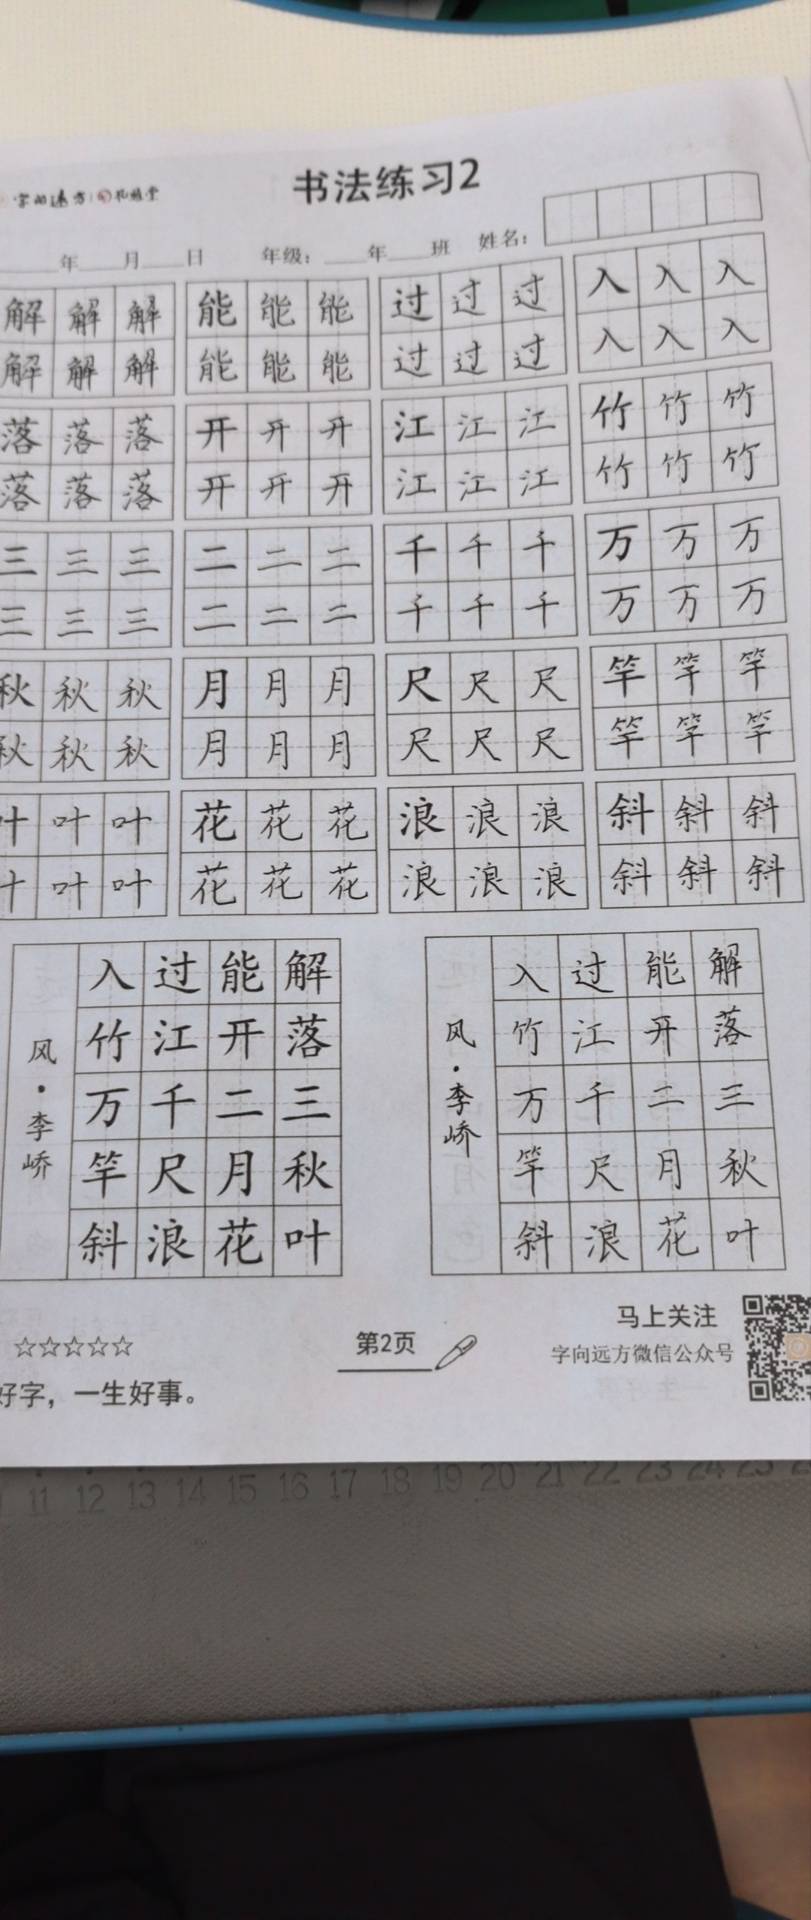 字向远方
书法练习2
年 月 日 年级： 年 班 姓名：
解 解 解 能 能 能 过 过 过 入 入 入
解 解 解 能 能 能 过 过 过 入 入 入
落 落 落 开 开 开 江 江 江 竹 竹 竹
落 落 落 开 开 开 江 江 江 竹 竹 竹
三 三 三 二 二 二 千 千 千 万 万 万
三 三 三 二 二 二 千 千 千 万 万 万
秋 秋 秋 月 月 月 尺 尺 尺 竿 竿 竿
秋 秋 秋 月 月 月 尺 尺 尺 竿 竿 竿
叶 叶 叶 花 花 花 浪 浪 浪 斜 斜 斜
叶 叶 叶 花 花 花 浪 浪 浪 斜 斜 斜
解落三秋叶
能开二月花
过江千尺浪
入竹万竿斜
风·李峤
解落三秋叶
能开二月花
过江千尺浪
入竹万竿斜
风·李峤
☆☆☆☆☆
好字，一生好事。
第2页
马上关注
字向远方微信公众号
11 12 13 14 15 16 17 18 19 20 21 22 23 24